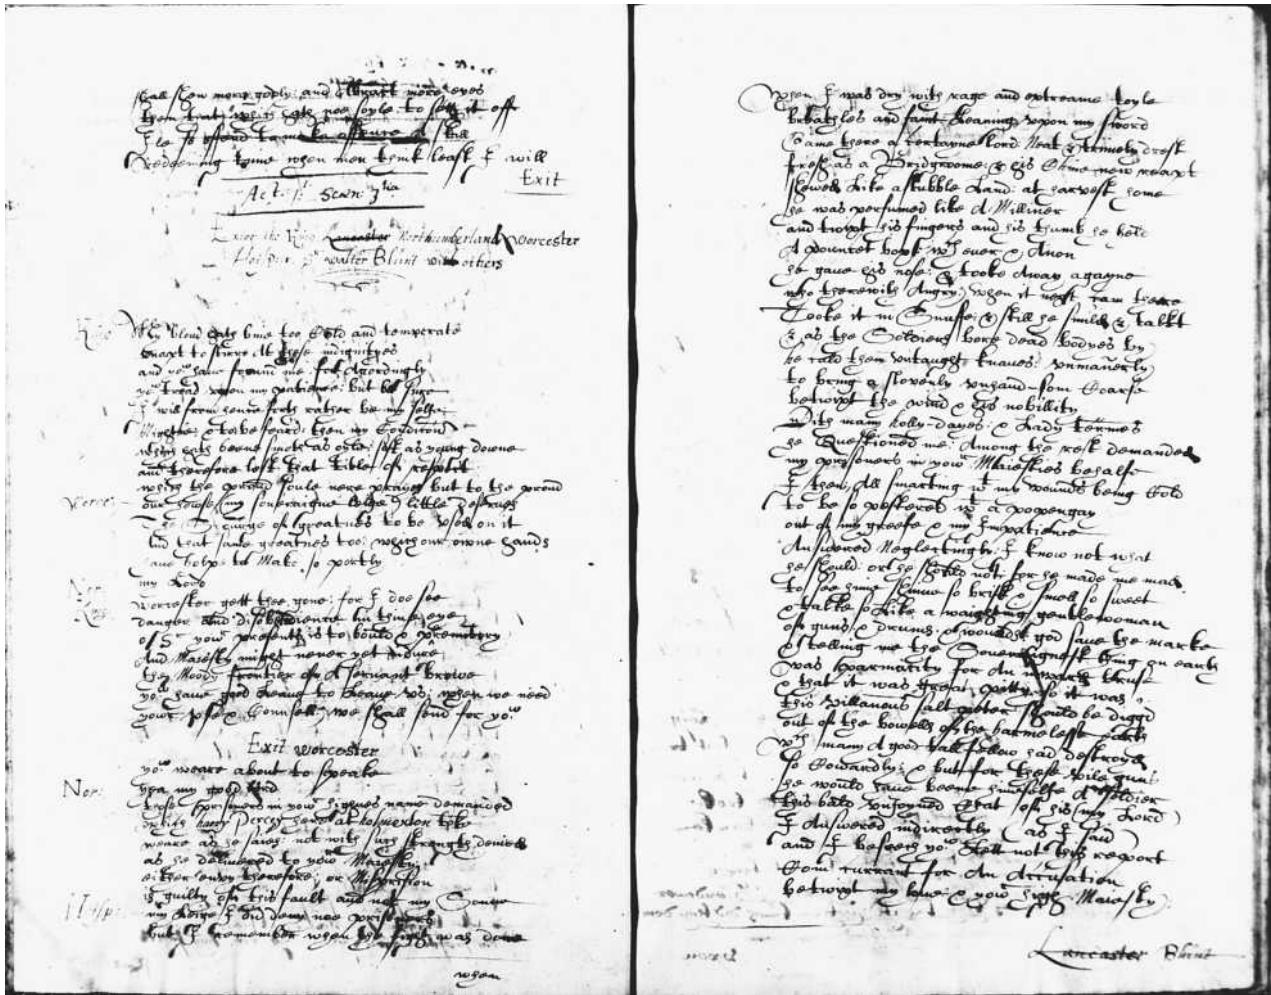 shall shew more goodly: and attract more eyes
then that which hath noe soyle to sett it off
Ile so offend to make offence a skill
Redeeming tyme when men think least I will
Exit
Act: 1: Scen: 3tia
Enter the King Lancaster Northumberland Worcester
Hotspur Sr Walter Blunt with others
King My bloud hath bine too Cold and temperate
unapt to stirre at these indignityes
and you have found me: for Acordingly
you tread upon my patience: but be sure
I will from hence forth rather be my selfe
Mightie: & to be feard: then my Condition
which hath beene smoth as oyle: soft as young downe
and therefore lost that title of respect
which the proud soule nere prayes but to the proud
Worces: our howse (my soueraigne Leige) little deserves
The Scourge of greatnes to be vsed on it
And that same greatnes too: which our owne hands
haue holpe to Make so portly
Nor my Lord
King Worcester gett thee gone: for I doe see
danger and disobedience in thine eye
o Sr your presence is to bould & peremtory
And Maiesty might never yet endure
the Moody frontier of A servant browe
you haue good Leaue to Leaue vs; when we need
your vse & Counsell; we shall send for you
Exit Worcester
you weare about to speake
Nor: yea my good Lord
those prisoners in your highnes name demanded
which harry Percy heere at holmedon toke
weare as he saies: not with such strength denied
as he delivered to your Maiesty;
either envy therefore; or Misprision
is guilty of this fault and not my Sonne
Hotsp: my Leige I did deny noe prisoners
but I remember when the fight was done
when
When I was dry with rage and extreame toyle
Brethles and faint Leaning vpon my sword
Came there a certayne lord: Neat & trimely drest
fresh as a Bridgroome: & his Chine new reapt
shewed Like a stubble Land: at harvest home
he was perfumed like A Milliner
and twixt his fingers and his thumb he held
A pouncet boxt wch ever & Anon
he gaue his nose: & tooke Away agayne
who therewith Angry) when it next cam there
Tooke it in Snuffe: & still he smild & talkt
& as the Soldiers bore dead bodyes by
he cald them vntaught knaues: vnmanerly
to bring a slovenly vnhand-som Coarse
betwixt the wind & his nobillity
With many holly-dayes: & Lady termes
he Questioned me: Among the rest demanded
my prisoners in your Maiesties behalfe
I then: All smarting wt my wounds being Cold
to be so pestered wt a popengay
out of my greefe & my Impatience
Answered Neglectingly: I know not what
he should: or he should not: for he made me mad
to see him shine so brisk & smell so sweet
& talke so Like a waighting gentlewoman
of guns & drums & wounds: god saue the marke
& telling me the Soueraignest thing on earth
was parmacity for An inward bruse
& that it was great pitty: so it was
this villanous salt peter should be diggd
out of the bowells of the harmelesse earth
wch many A good tall fellow had destroyd
so Cowardly: & but for these vile guns
he would haue beene himselfe A soldier
this bald vnioynted Chat of his (my Lord)
I Answered indirectly (as I said)
and I beseech you Lett not this report
Com currant for An Accusation
betwixt my loue: & your high Maiesty
Lancaster Blunt